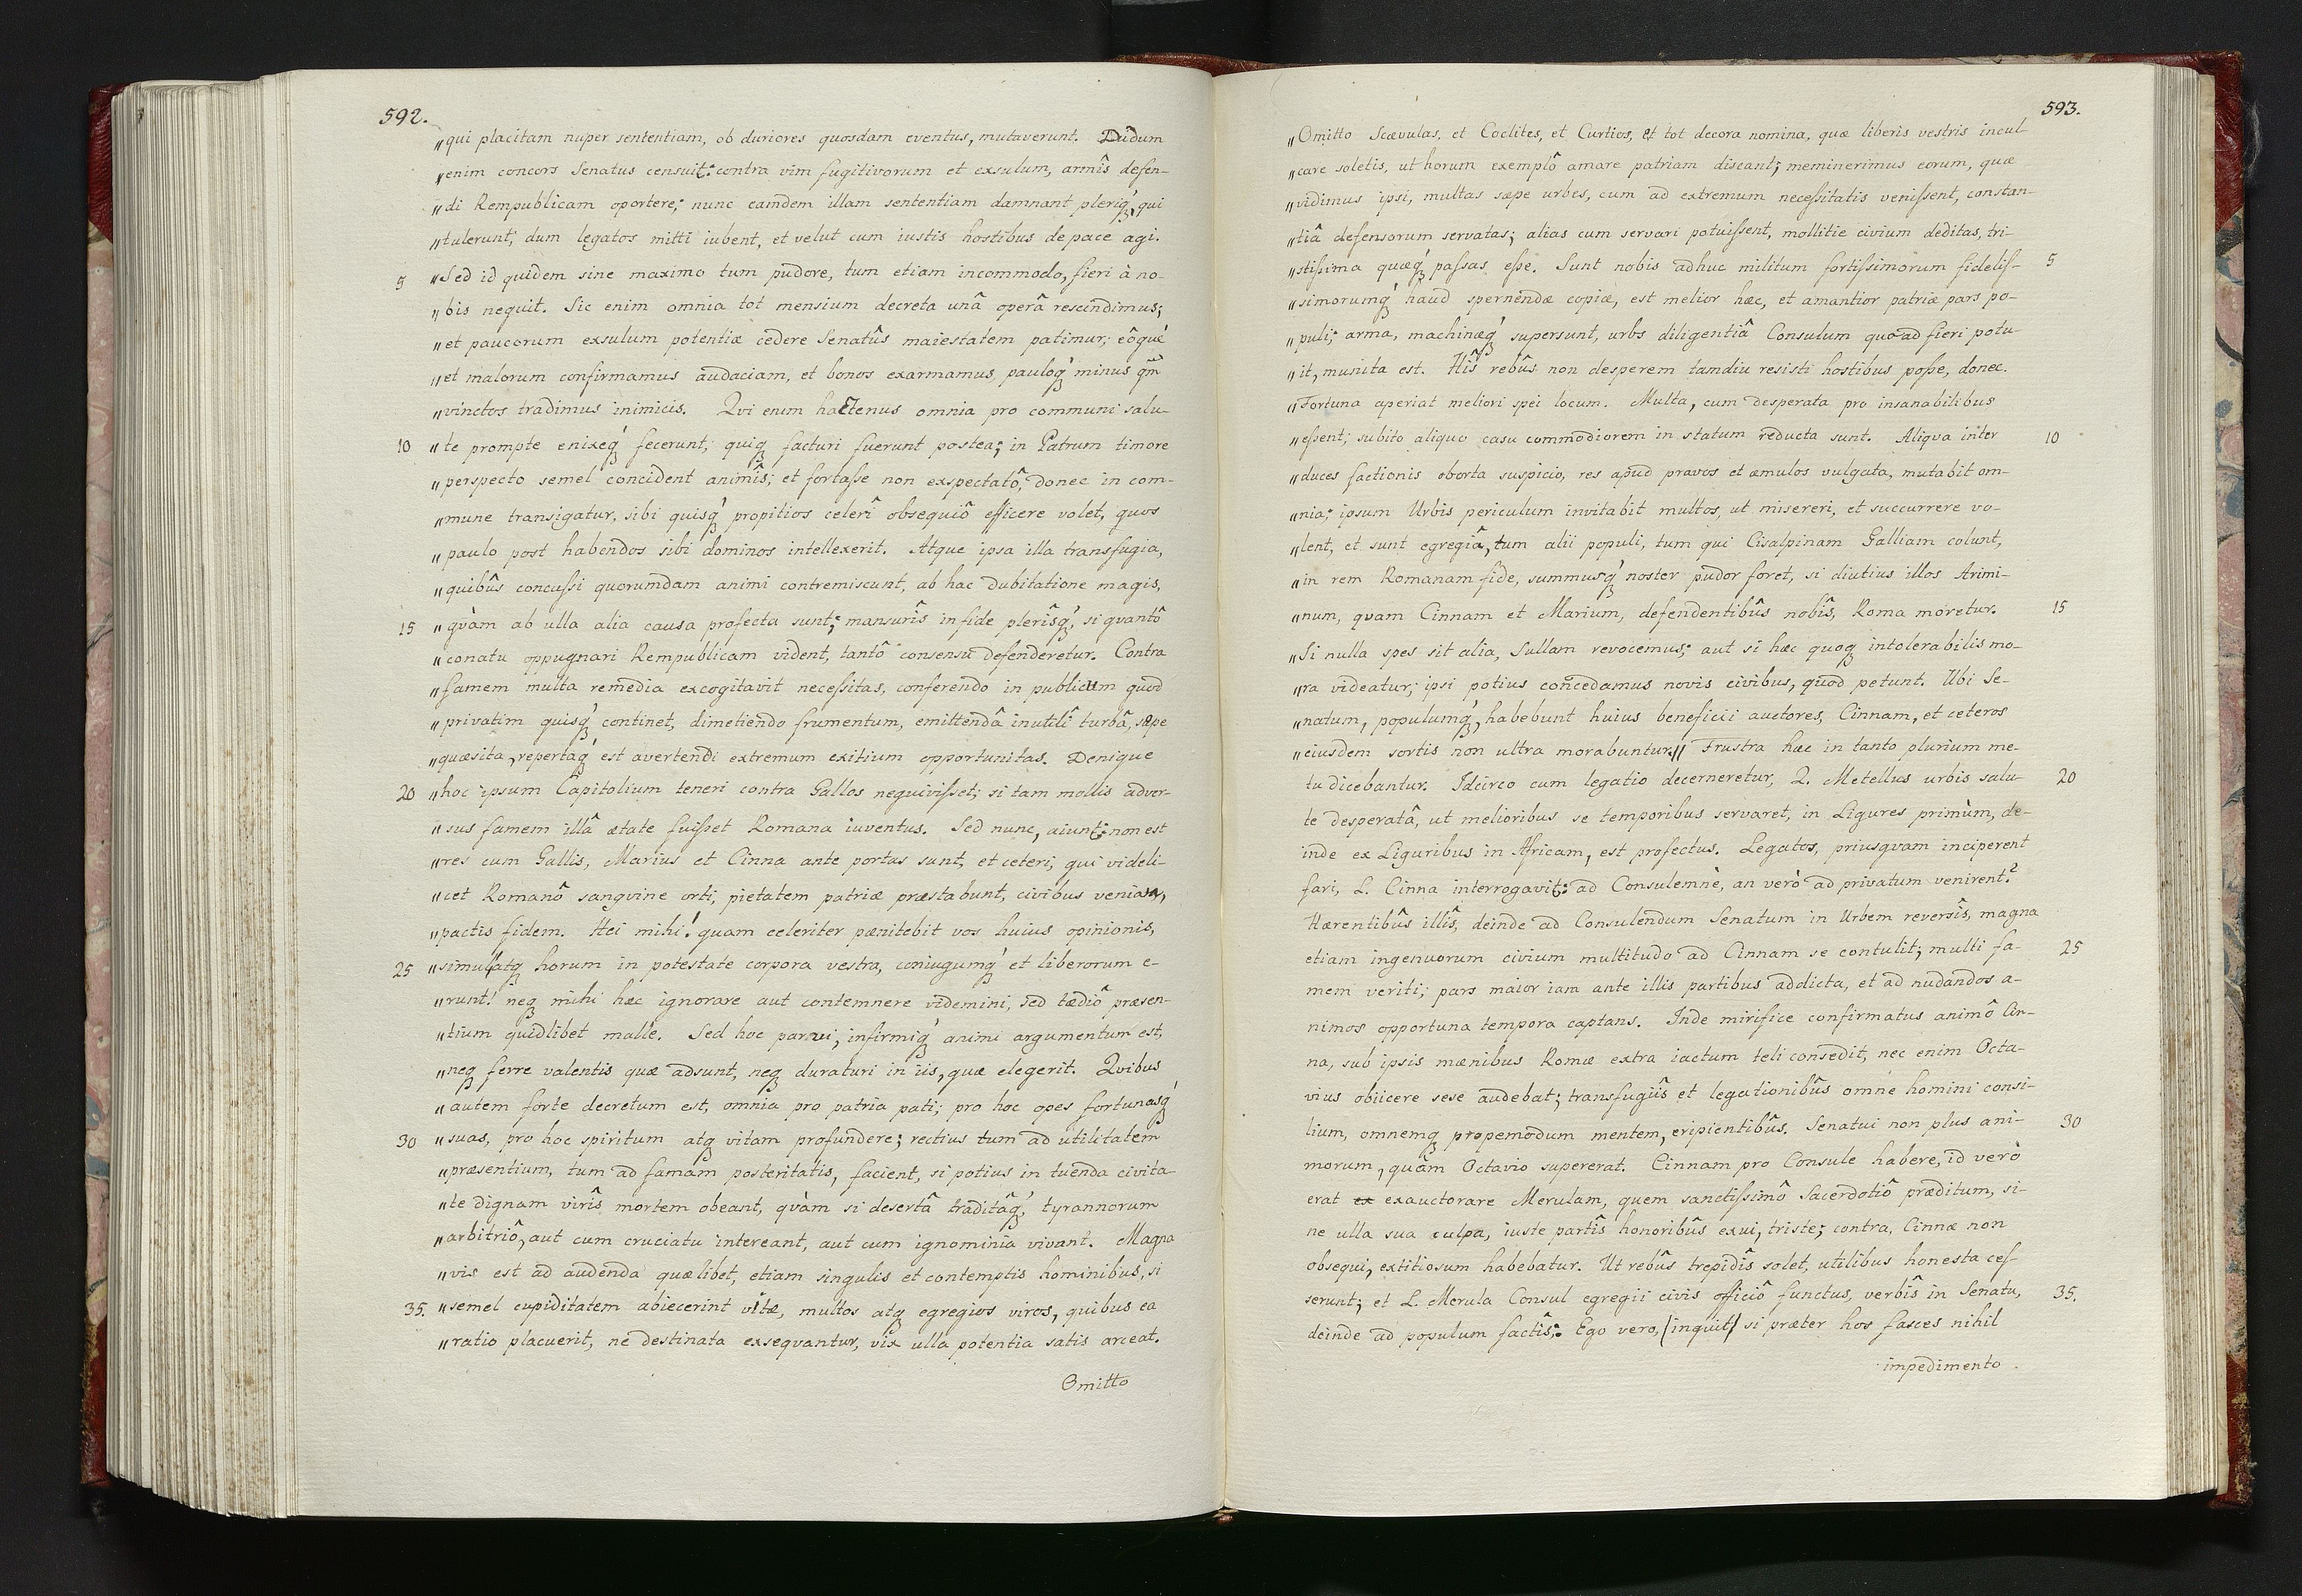 592.
„qui placitam nuper sententiam, ob duriores quosdam eventus, mutaverunt. Dudum
„enim concors Senatus censuit: contra vim fugitivorum et exsulum, armîs defen-
„di Rempublicam oportere; nunc eamdem illam sententiam damnant pleriq́ꝫ, qui
„tulerunt; dum legatos mitti iubent, et velut cum iustis hostibus de pace agi.
5 „Sed id quidem sine maximo tum pudore, tum etiam incommodo, fieri à no-
„bis nequit. Sic enim omnia tot mensium decreta unâ operâ rescindimus;
„et paucorum exsulum potentiæ cedere Senatûs maiestatem patimur; eôqué
„et malorum confirmamus audaciam, et bonos exarmamus, pauloq́ꝫ minus qm̃
„vinctos tradimus inimicis. Qvi enim hactenus omnia pro communi salu-
10 „te prompte enixeq́ꝫ fecerunt; quiqꝫ facturi fuerunt postea; in Patrum timore
„perspecto semel concident animîs; et fortaſse non exspectatô, donec in com-
„mune transigatur, sibi quisq́ꝫ propitios celerî obsequiô efficere volet, quos
„paulo post habendos sibi dominos intellexerit. Atque ipsa illa transfugia,
„quibûs concuſsi quorumdam animi contremiscunt, ab hac dubitatione magis,
15 „qvàm ab ulla alia causa profecta sunt; mansurîs in fide plerîsq́ꝫ, si qvantô
„conatu oppugnari Rempublicam vident, tantô consensu defenderetur. Contra
„famem multa remedia excogitavit neceſsitas, conferendo in publicum quod
„privatim quisq́ꝫ continet, dimetiendo frumentum, emittendâ inutilî turbâ, sæpe
„quæsita, repertaq́ꝫ est avertendi extremum exitium opportunitas. Denique
20 „hoc ipsum Capitolium teneri contra Gallos nequiviſset; si tam mollis adver-
„sus famem illâ ætate fuiſset Romana iuventus. Sed nunc, aiunt: non est
„res cum Gallis, Marius et Cinna ante portas sunt, et ceteri, qui videli-
„cet Romanô sangvine orti, pietatem patriæ præstabunt, civibus veniam,
„pactis fidem. Hei mihi! quam celeriter pænitebit vos huius opinionis,
25 „simulatqꝫ horum in potestate corpora vestra, coniugumq́ꝫ et liberorum e-
„runt! neqꝫ mihi hæc ignorare aut contemnere videmini, sed tædiô præsen-
„tium quidlibet malle. Sed hoc parvi, infirmiq́ꝫ animi argumentum est,
„neqꝫ ferre valentis quæ adsunt, neqꝫ duraturi in iis, quæ elegerit. Qvibus
„autem forte decretum est, omnia pro patria pati; pro hoc opes fortunasq́ꝫ
30 „suas, pro hoc spiritum atqꝫ vitam profundere; rectius tum ad utilitatem
„præsentium, tum ad famam posteritatis, facient, si potius in tuenda civita-
„te dignam virîs mortem obeant, qvàm si desertâ traditâq́ꝫ, tyrannorum
„arbitriô, aut cum cruciatu intereant, aut cum ignominia vivant. Magna
„vis est ad audenda quælibet, etiam singulis et contemptis hominibus, si
35. „semel cupiditatem abiecerint vitæ, multos atqꝫ egregios viros, quibus ea
„ratio placuerit, ne destinata exseqvantur, vix ulla potentia satis arceat.
Omitto
593.
„Omitto Scævulas, et Coclites, et Curtios, et tot decora nomina, quæ liberis vestris incul-
„care soletis, ut horum exemplô amare patriam discant; meminerimus eorum, quæ
„vidimus ipsi, multas sæpe urbes, cum ad extremum neceſsitatis veniſsent, constan-
„tiâ defensorum servatas; alias cum servari potuiſsent, mollitie civium deditas, tri-
„stiſsima quæq́ꝫ paſsas eſse. Sunt nobis adhuc militum fortiſsimorum fideliſ- 5
„simorumq́ꝫ haud spernendæ copiæ, est melior hæc, et amantior patriæ pars po-
„puli; arma, machinæq́ꝫ supersunt, urbs diligentiâ Consulum quoad fieri potu-
„it, munita est. Hîs rebûs non desperem tamdiu resisti hostibus poſse, donec.
„Fortuna aperiat meliori spei locum. Multa, cum desperata pro insanabilibus
„eſsent; subito aliquo casu commodiorem in statum reducta sunt. Aliqva inter 10
„duces factionis oborta suspicio, res apud pravos et æmulos vulgata, mutabit om-
„nia; ipsum Urbis periculum invitabit multos, ut misereri, et succurrere vo-
„lent, et sunt egregiâ, tum alii populi, tum qui Cisalpinam Galliam colunt,
„in rem Romanam fide, summusq́ꝫ noster pudor foret, si diutius illos Arimi-
„num, qvam Cinnam et Marium, defendentibûs nobîs, Roma moretur. 15
„Si nulla spes sit alia, Sullam revocemus; aut si hæc quoqꝫ intolerabilis mo-
„ra videatur; ipsi potius concedamus novis civibus, quod petunt. Ubi Se-
„natum, populumq́ꝫ, habebunt huius beneficii auctores, Cinnam, et ceteros
„eiusdem sortis non ultra morabuntur„ Frustra hæc in tanto plurium me-
tu dicebantur. Idcirco cum legatio decerneretur, Q. Metellus urbis salu- 20
te desperatâ, ut melioribus se temporibus servaret, in Ligures primùm, de-
inde ex Liguribus in Africam, est profectus. Legatos, priusqvam inciperent
fari, L. Cinna interrogavit: ad Consulemnè, an verò ad privatum venirent?
Hærentibûs illîs, deinde ad Consulendum Senatum in Urbem reversîs, magna
etiam ingenuorum civium multitudo ad Cinnam se contulit; multi fa- 25
mem veriti; pars maior iam ante illis partibus addicta, et ad nudandos a-
nimos opportuna tempora captans. Inde mirifice confirmatus animô Cin-
na, sub ipsis mænibus Romæ extra iactum teli consedit, nec enim Octa-
vius obiicere sese audebat; transfugiîs et legationibûs omne homini consi-
lium, omnemqꝫ propemodum mentem, eripientibûs. Senatui non plus ani- 30
morum, quàm Octavio supererat. Cinnam pro Consule habere, id verò
erat ex exauctorare Merulam, quem sanctiſsimô Sacerdotiô præditum, si-
ne ulla sua culpa, iuste partîs honoribûs exui, triste; contra, Cinnæ non
obsequi, extitiosum habebatur. Ut rebûs trepidîs solet, utilibus honesta ceſ-
serunt; et L. Merula Consul egregii civis officiô functus, verbîs in Senatu, 35.
deinde ad populum factîs: Ego vero, (inquit) si præter hos fasces nihil
impedimento